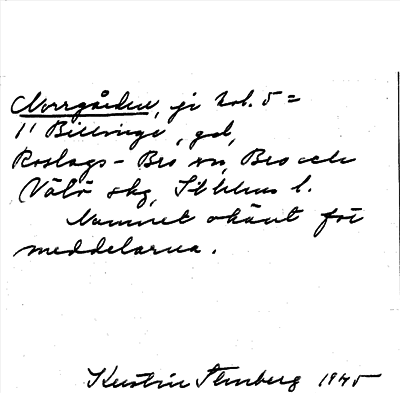 Norrgården, je kol. 5 =
1' Billinge, gd,
Roslags-Bro sn, Bro och
Vätö skg, Sthlms l.
Namnet okänt för
meddelarna.
Kerstin Stenberg 1945